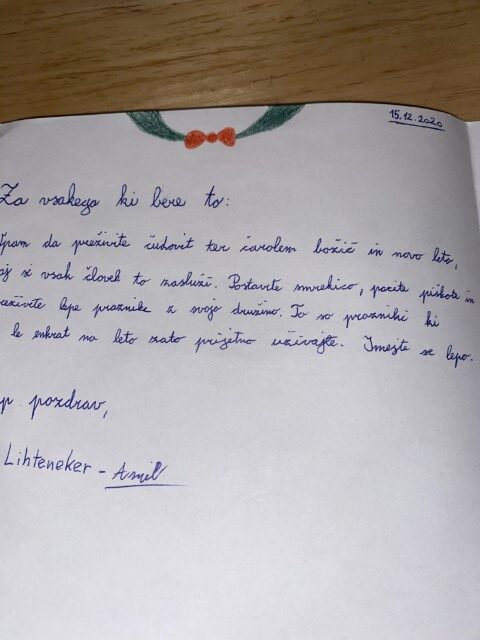 15.12.2020
Za vsakega ki bere to:
upam da preživite čudovit ter čarolem božič in novo leto,
saj si vsak človek to zasluži. Postavte smrekico, pecite piškote in
uživte lepe praznike z svojo družino. To so prazniki ki
le enkrat na leto zato prijetno uživajte. Imejte se lepo.
p pozdrav,
Lihteneker -